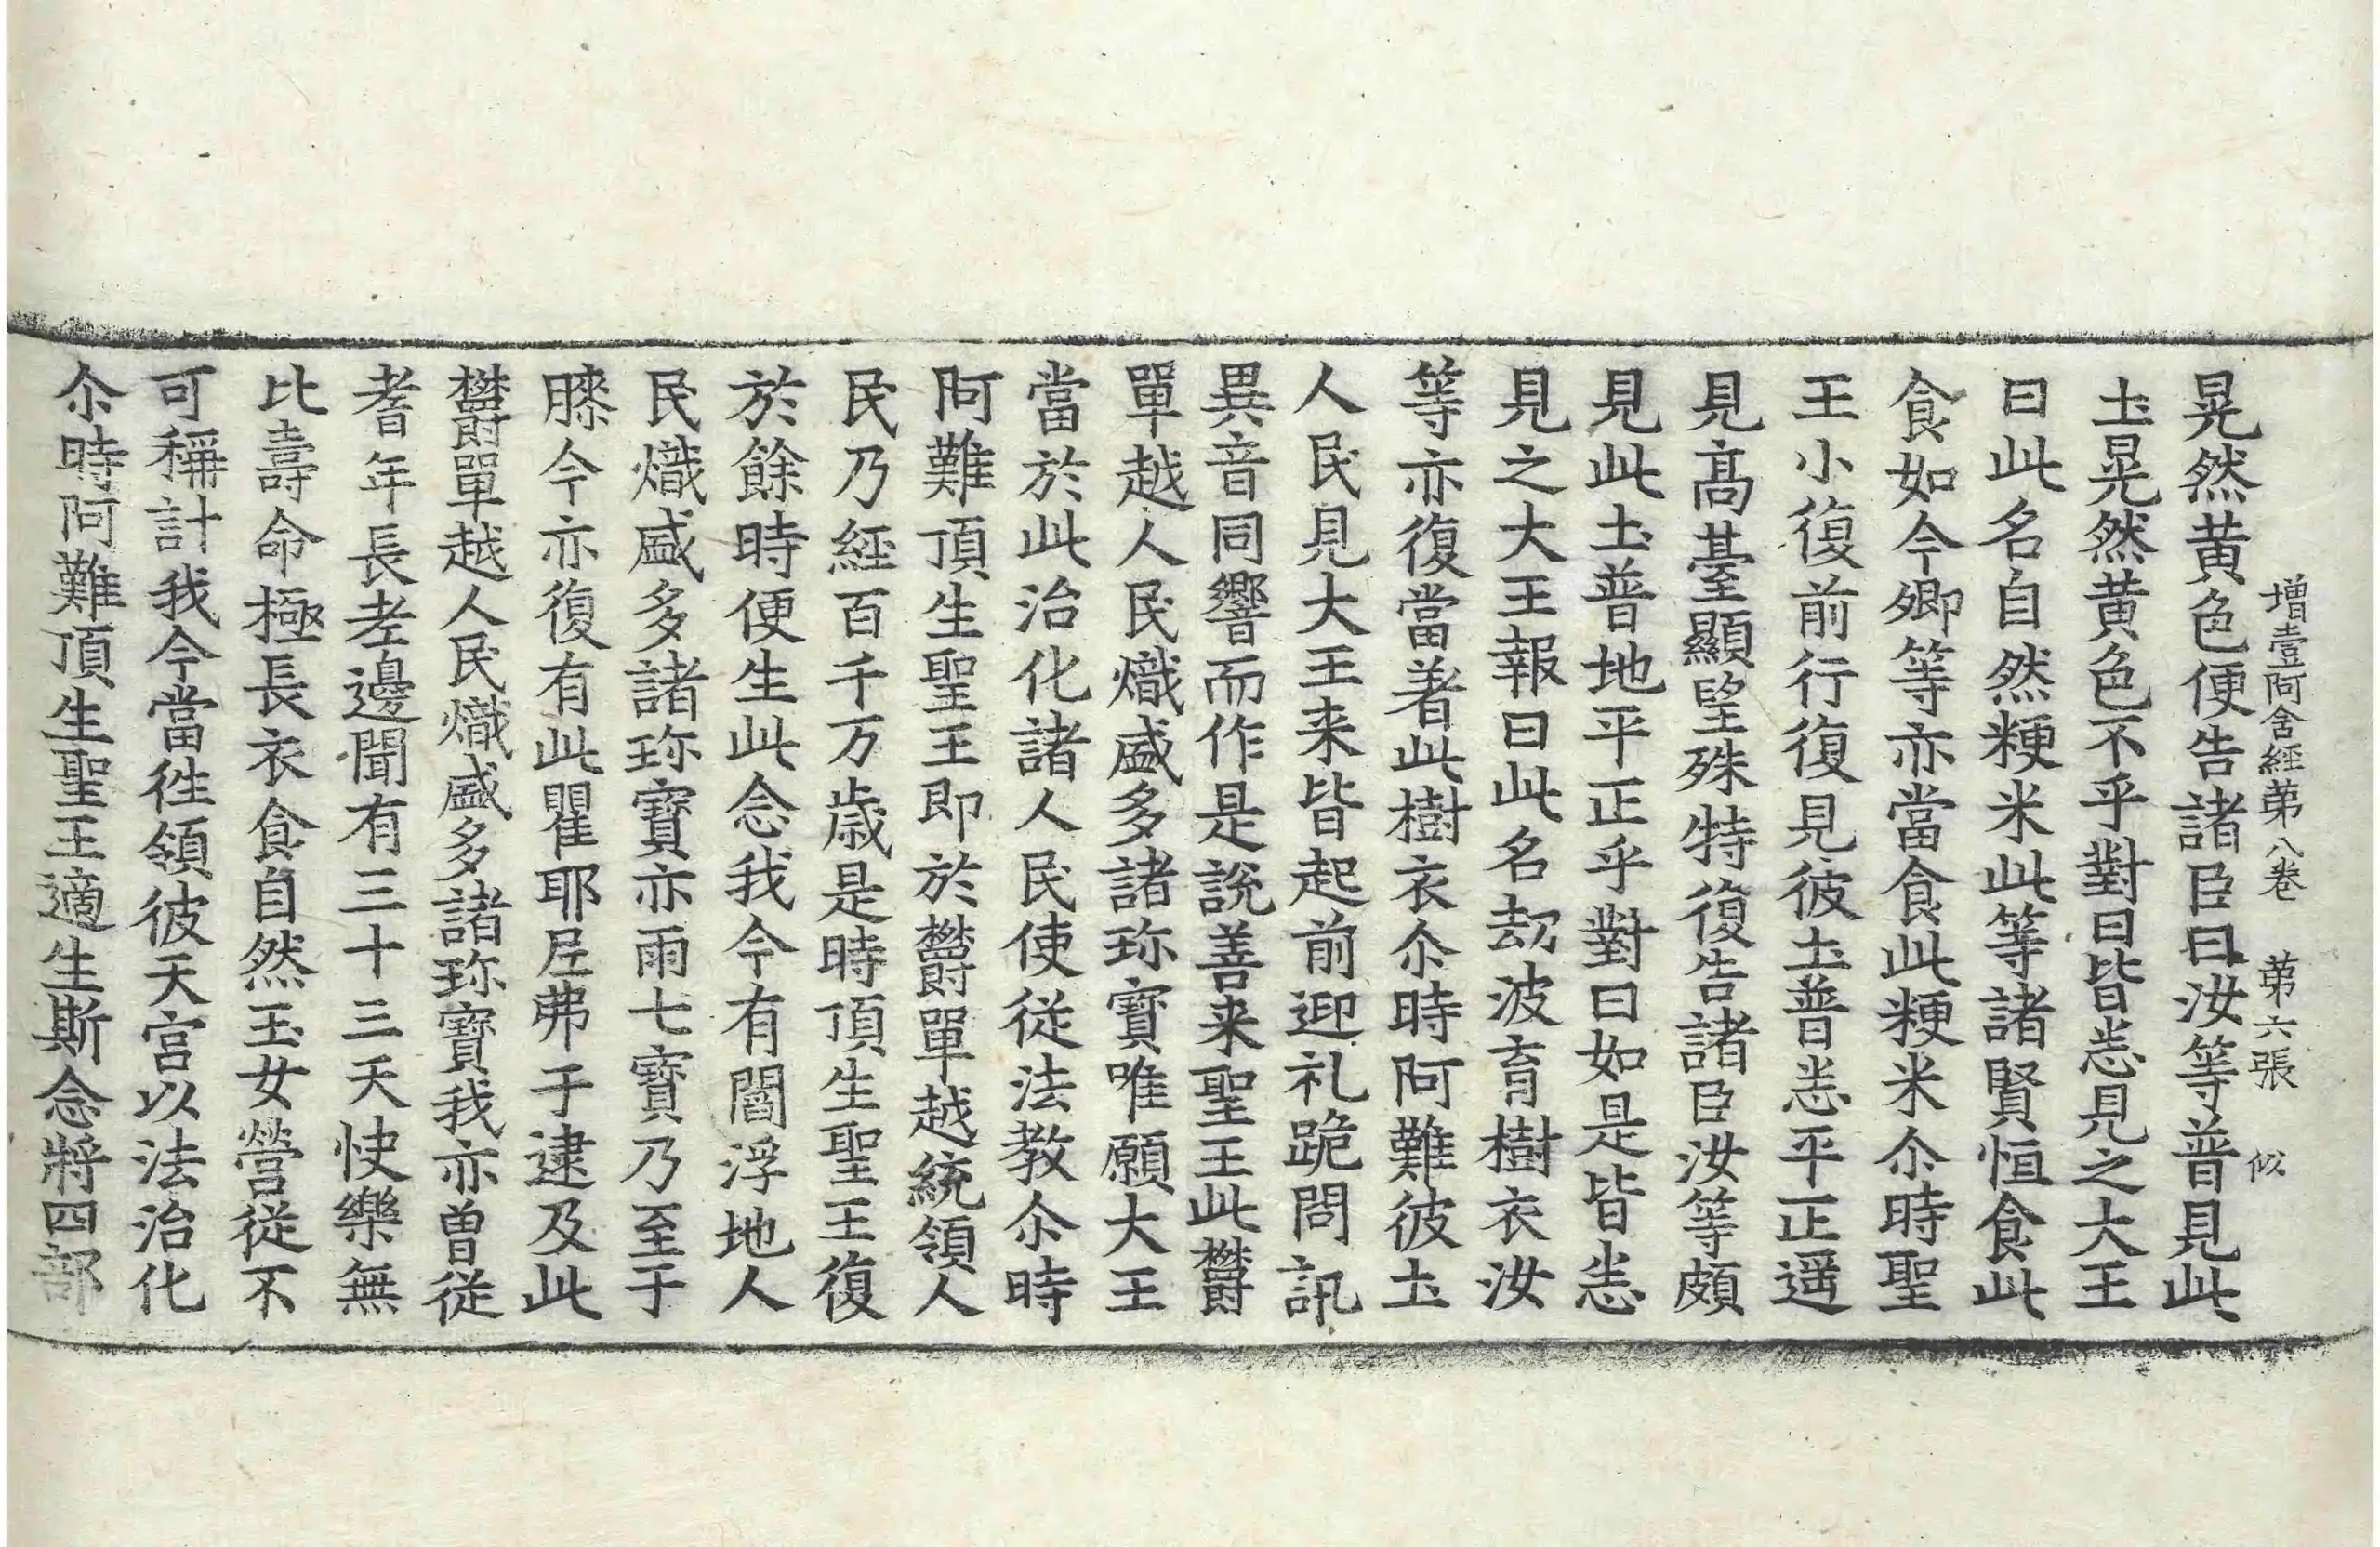 増壹阿含經苐八卷 苐六張 似
晃然黄色便告諸臣曰汝等普見此
圡晃然黄色不乎對曰皆悉見之大王
曰此名自然粳米此等諸賢恒食此
食如今卿等亦當食此粳米尒時聖
王小復前行復見彼圡普悉平正遥
見髙䑓顯望殊特復告諸臣汝等頗
見此圡普地平正乎對曰如是皆悉
見之大王報曰此名刧波育樹衣汝
等亦復當著此樹衣尒時阿難彼圡
人民見大王来皆起前迎礼跪問訊
異音同響而作是說善来聖王此欝
單越人民熾盛多諸珎寶唯願大王
當於此治化諸人民使従法教尒時
阿難頂生聖王即於欝單越統領人
民乃経百千万歳是時頂生聖王復
於餘時便生此念我今有閻浮地人
民熾盛多諸珎寶亦雨七寶乃至于
膝今亦復有此瞿耶尼弗于逮及此
欝單越人民熾盛多諸珎寶我亦曽従
耆年長老邊聞有三十三天快樂無
比壽命極長衣食自然玉女營従不
可稱計我今當徃領彼天宮以法治化
尒時阿難頂生聖王適生斯念將四部